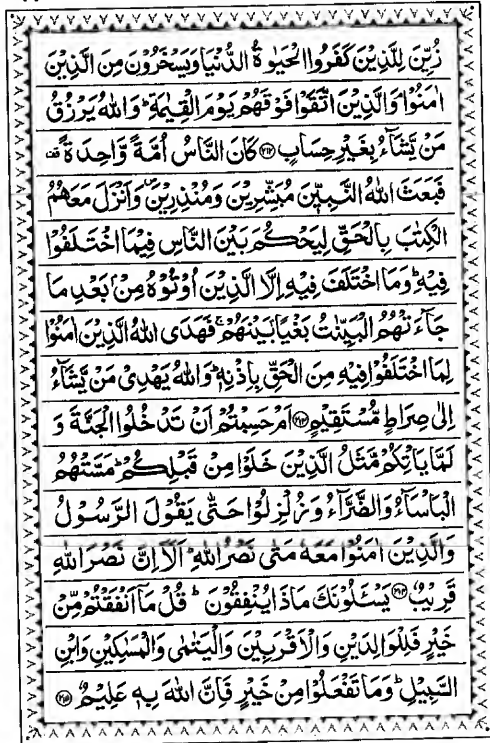 زُيِّنَ لِلَّذِيْنَ كَفَرُوا الْحَيٰوةُ الدُّنْيَا وَيَسْخَرُوْنَ مِنَ الَّذِيْنَ
اٰمَنُوْاۘ وَالَّذِيْنَ اتَّقَوْا فَوْقَهُمْ يَوْمَ الْقِيٰمَةِؕ وَاللّٰهُ يَرْزُقُ
مَنْ يَّشَآءُ بِغَيْرِ حِسَابٍ ﴿۲۱۲﴾ كَانَ النَّاسُ اُمَّةً وَّاحِدَةً
فَبَعَثَ اللّٰهُ النَّبِيّٖنَ مُبَشِّرِيْنَ وَمُنْذِرِيْنَ وَاَنْزَلَ مَعَهُمُ
الْكِتٰبَ بِالْحَقِّ لِيَحْكُمَ بَيْنَ النَّاسِ فِيْمَا اخْتَلَفُوْا
فِيْهِؕ وَمَا اخْتَلَفَ فِيْهِ اِلَّا الَّذِيْنَ اُوْتُوْهُ مِنْۢ بَعْدِ مَا
جَآءَتْهُمُ الْبَيِّنٰتُ بَغْيًۢا بَيْنَهُمْۚ فَهَدَى اللّٰهُ الَّذِيْنَ اٰمَنُوْا
لِمَا اخْتَلَفُوْا فِيْهِ مِنَ الْحَقِّ بِاِذْنِهٖؕ وَاللّٰهُ يَهْدِيْ مَنْ يَّشَآءُ
اِلٰى صِرَاطٍ مُّسْتَقِيْمٍ ﴿۲۱۳﴾ اَمْ حَسِبْتُمْ اَنْ تَدْخُلُوا الْجَنَّةَ وَ
لَمَّا يَاْتِكُمْ مَّثَلُ الَّذِيْنَ خَلَوْا مِنْ قَبْلِكُمْؕ مَسَّتْهُمُ
الْبَاْسَآءُ وَالضَّرَّآءُ وَزُلْزِلُوْا حَتّٰى يَقُوْلَ الرَّسُوْلُ
وَالَّذِيْنَ اٰمَنُوْا مَعَهٗ مَتٰى نَصْرُ اللّٰهِؕ اَلَاۤ اِنَّ نَصْرَ اللّٰهِ
قَرِيْبٌ ﴿۲۱۴﴾ يَسْـَٔلُوْنَكَ مَاذَا يُنْفِقُوْنَؕ قُلْ مَاۤ اَنْفَقْتُمْ مِّنْ
خَيْرٍ فَلِلْوَالِدَيْنِ وَالْاَقْرَبِيْنَ وَالْيَتٰمٰى وَالْمَسٰكِيْنِ وَابْنِ
السَّبِيْلِؕ وَمَا تَفْعَلُوْا مِنْ خَيْرٍ فَاِنَّ اللّٰهَ بِهٖ عَلِيْمٌ ﴿۲۱۵﴾